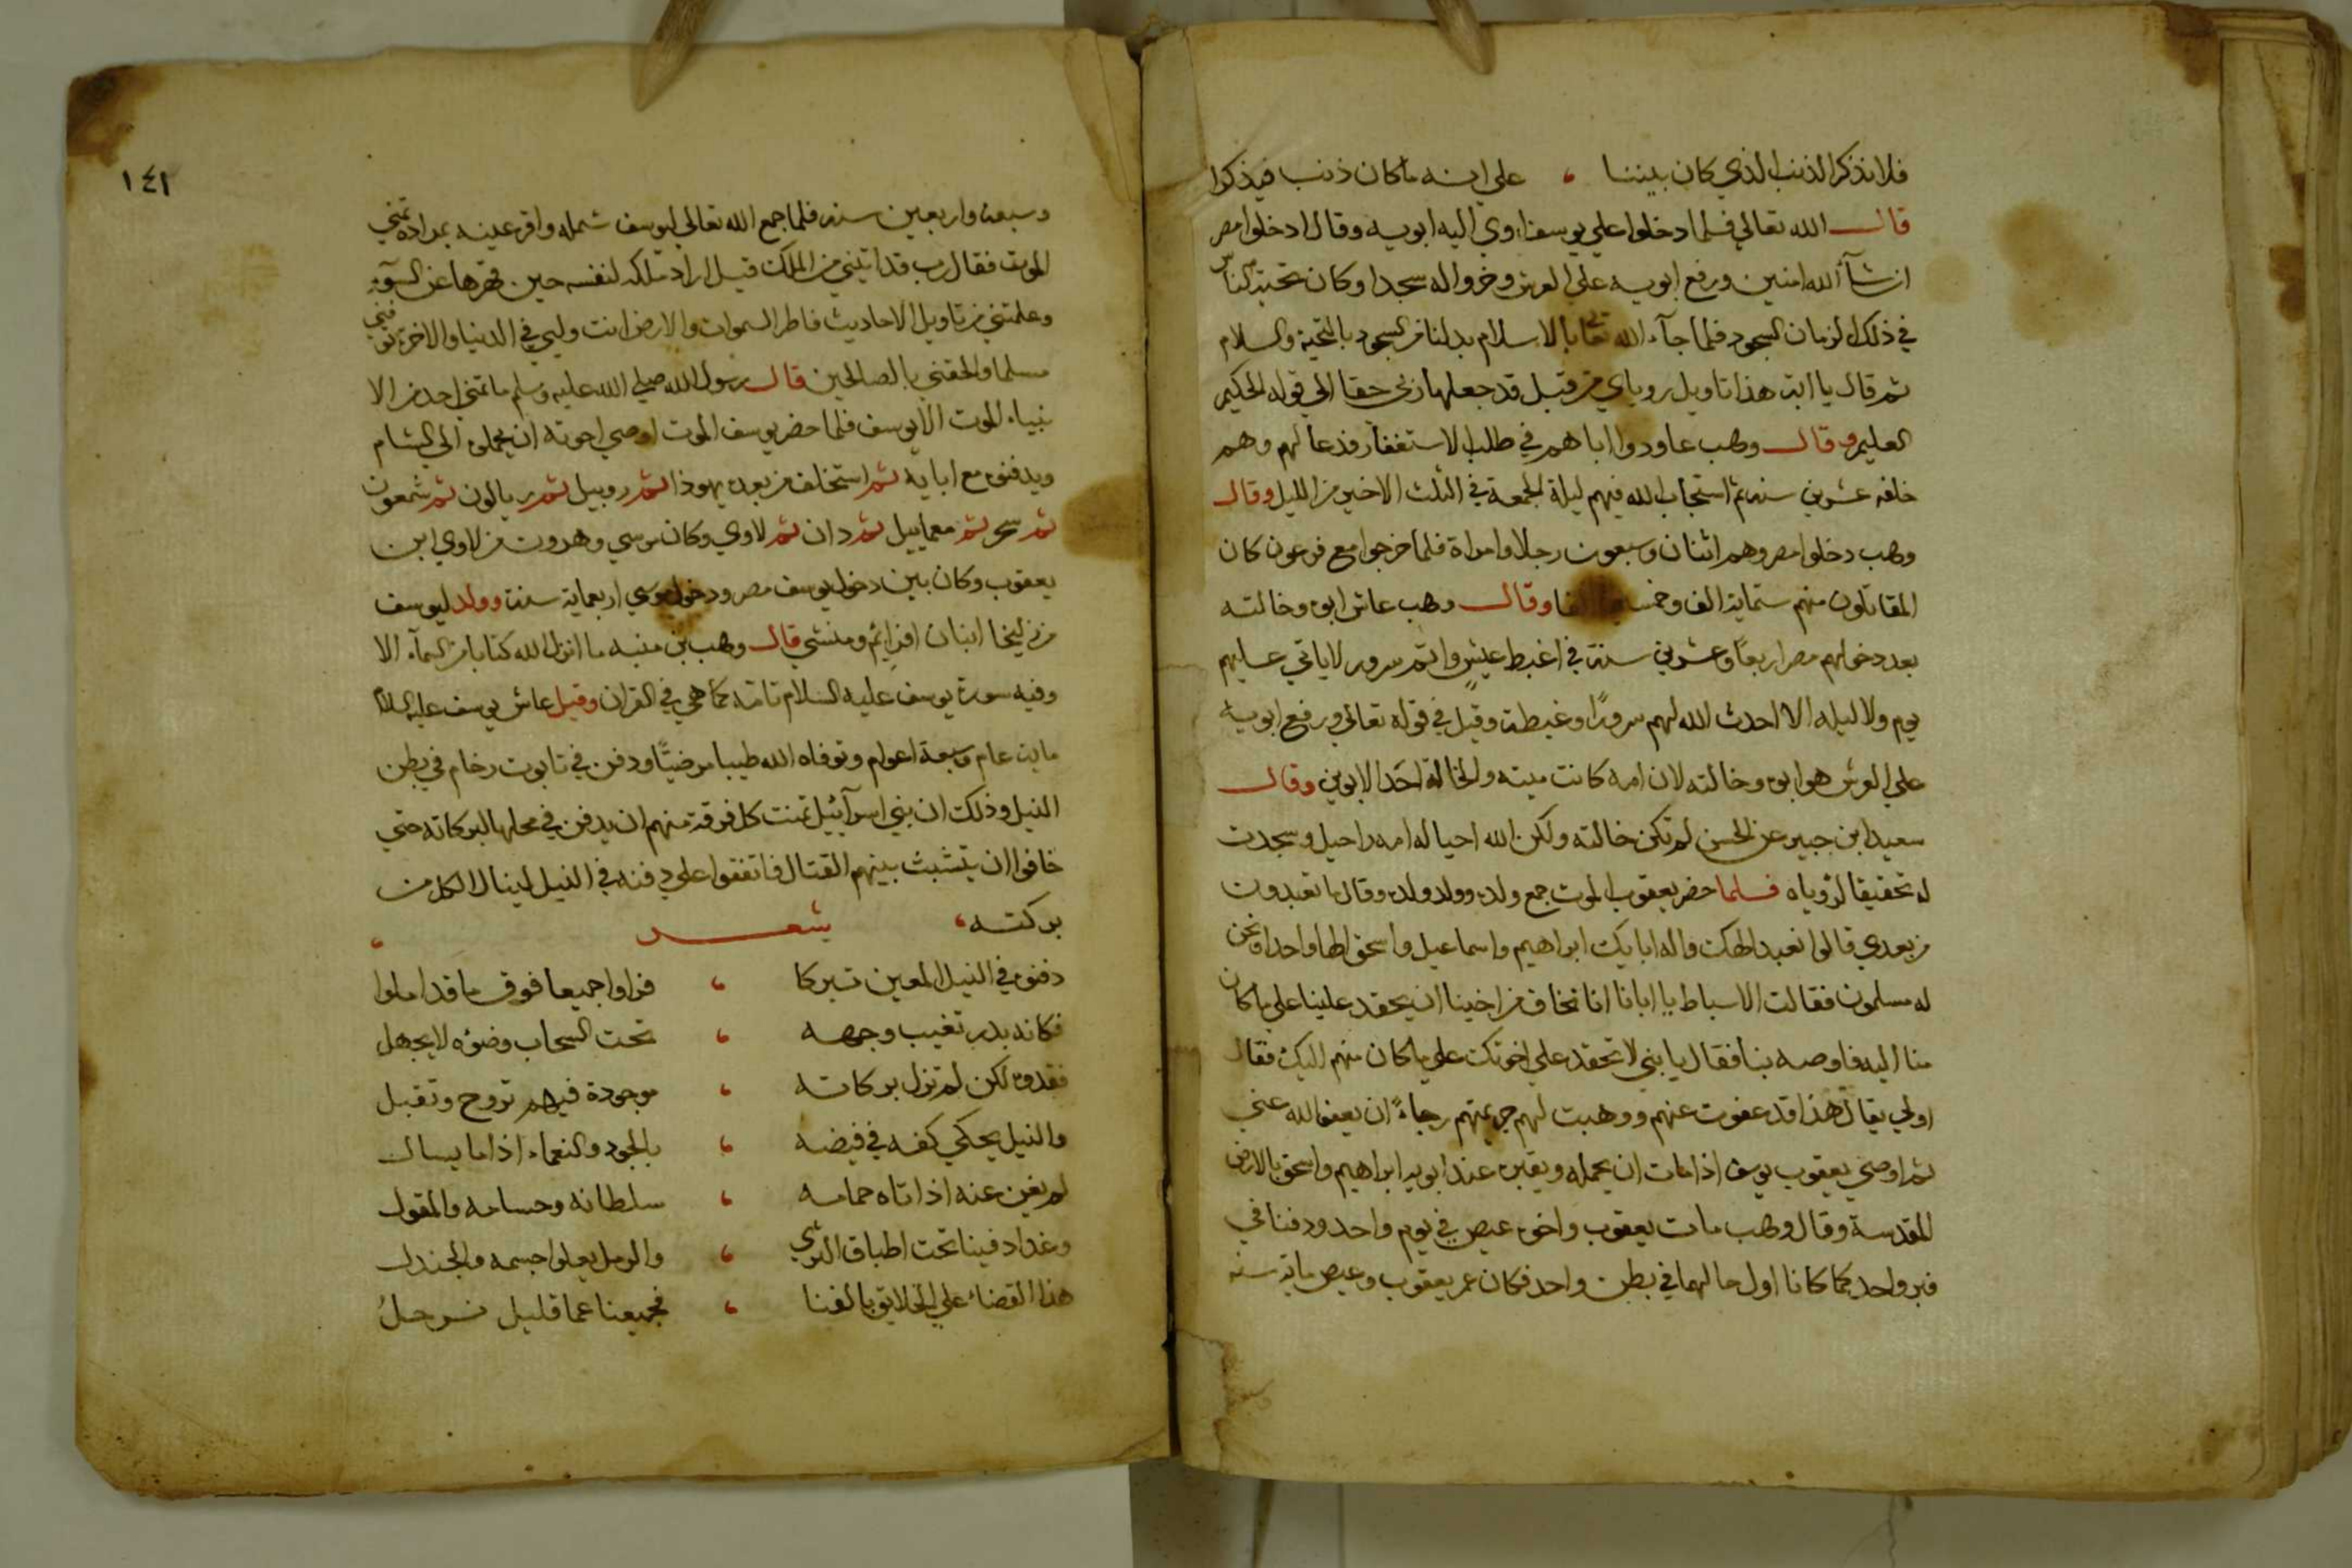 فلا نذكر الذنب الذي كان بيننا ، علي انه ما كان ذنب فيذكرا
قال الله تعالي فلما دخلوا علي يوسف اوي اليه ابويه وقال ادخلوا مصر
ان شآء الله امنين ورفع ابويه علي العرش وخروا له سجدا وكان تحية الناس
في ذلك الزمان السجود فلما جآء الله تعالي بالاسلام بدلنا من السجود بالتحية والسلام
ثم قال يا ابت هذا تاويل روياي من قبل قد جعلها ربي حقا الي قوله الحكيم
العليم وقال وهب عاودوا اباهم في طلب الاستغفار فدعا لهم وهم
خلفه عشرين سنه ثم استجاب الله فيهم ليلة الجمعة في الثلث الاخير من الليل وقال
وهب دخلوا مصر وهم اثنان وسبعون رجلا وامراة فلما خرجوا مع فرعون كان
المقاتلون منهم ستماية الف وخمسة الفا وقال وهب عاش ابوه وخالته
بعد دخولهم مصر اربعا وعشرين سنة في اغبط عيش واتم سرور لا ياتي عليهم
يوم ولا ليله الا احدث الله لهم سرورا وغبطة وقيل في قوله تعالي ورفع ابويه
علي العرش هو ابوه وخالته لان امه كانت ميته والخالة احد الابوين وقال
سعيد ابن جبير عن الحسن لم تكن خالته ولكن الله احيا له امه راحيل وسجدت
له تحقيقا لرؤياه فلما حضر يعقوب الموت جمع ولده وولد ولده وقال ما تعبدون
من بعدي قالوا نعبد الهك واله ابايك ابراهيم واسماعيل واسحق الها واحدا ونحن
له مسلمون فقالت الاسباط يا ابانا انا نخاف من اخينا ان يحقد علينا علي ما كان
منا اليه فاوصه بنا فقال يا بني لا تحقد علي اخوتك علي ما كان منهم اليك فقال
اولي يقال هذا قد عفوت عنهم ووهبت لهم جريمتهم رجاءً ان يعفو الله عني
ثم اوصي يعقوب يوسف اذا مات ان يحمله ويقبره عند ابويه ابراهيم واسحق بالارض
المقدسة وقال وهب مات يعقوب واخوه عيص في يوم واحد ودفنا في
قبر واحد كما كانا اول حالهما في بطن واحد فكان عمر يعقوب وعيص ماية سنه
١٤١
وسبعة واربعين سنة فلما جمع الله تعالي ليوسف شمله واقر عينه بمراده تمني
الموت فقال رب قد اتيتني من الملك قيل اراد ملكه لنفسه حين قهرها عن السوء
وعلمتني من تاويل الاحاديث فاطر السموات والارض انت وليي في الدنيا والاخرة توفني
مسلما والحقني بالصالحين قال رسول الله صلي الله عليه وسلم ما تمني احد من الا
نبياء الموت الا يوسف فلما حضر يوسف الموت اوصي اخوته ان يحملوه الي الشام
ويدفنوه مع ابايه ثم استخلف من بعده يهوذا ثم روبيل ثم ريالون ثم شمعون
ثم ثم معماييل ثم دان ثم لاوي وكان موسي وهرون من لاوي ابن
يعقوب وكان بين دخول يوسف مصر ودخول موسي اربعماية سنة وولد ليوسف
من زليخا ابنان افرائيم ومنشي قال وهب بن منبه ما انزل الله كتابا من السمآء الا
وفيه سورة يوسف عليه السلام تامة كما هي في القران وقيل عاش يوسف عليه السلام
ماية عام وسبعة اعوام وتوفاه الله طيبا مرضيًّا ودفن في تابوت رخام في بطن
النيل وذلك ان بني اسرآئيل تمنت كل فرقة منهم ان يدفن في محلها لبركاته حتي
خافوا ان يتشبث بينهم القتال فاتفقوا علي دفنه في النيل لينال الكل من
بركته ، شعر ،
دفنوه في النيل المعين تبركا ، فراوا جميعا فوق ما قد املوا
فكانه بدر تغيب وجهه ، تحت السحاب وضوه لا يجهل
فقدوه لكن لم تزل بركاته ، موجودة فيهم تروح وتقبل
والنيل يحكي كفه في فيضه ، بالجود والنعماء اذا ما يسال
لم يغن عنه اذ اتاه حمامه ، سلطانه وحسامه والمقول
وغدا دفينا تحت اطباق الثري ، والرمل يعلوا جسمه والجندل
هذا القضاء علي الخلايق بالفنا ، فجميعنا عما قليل نرحلُ